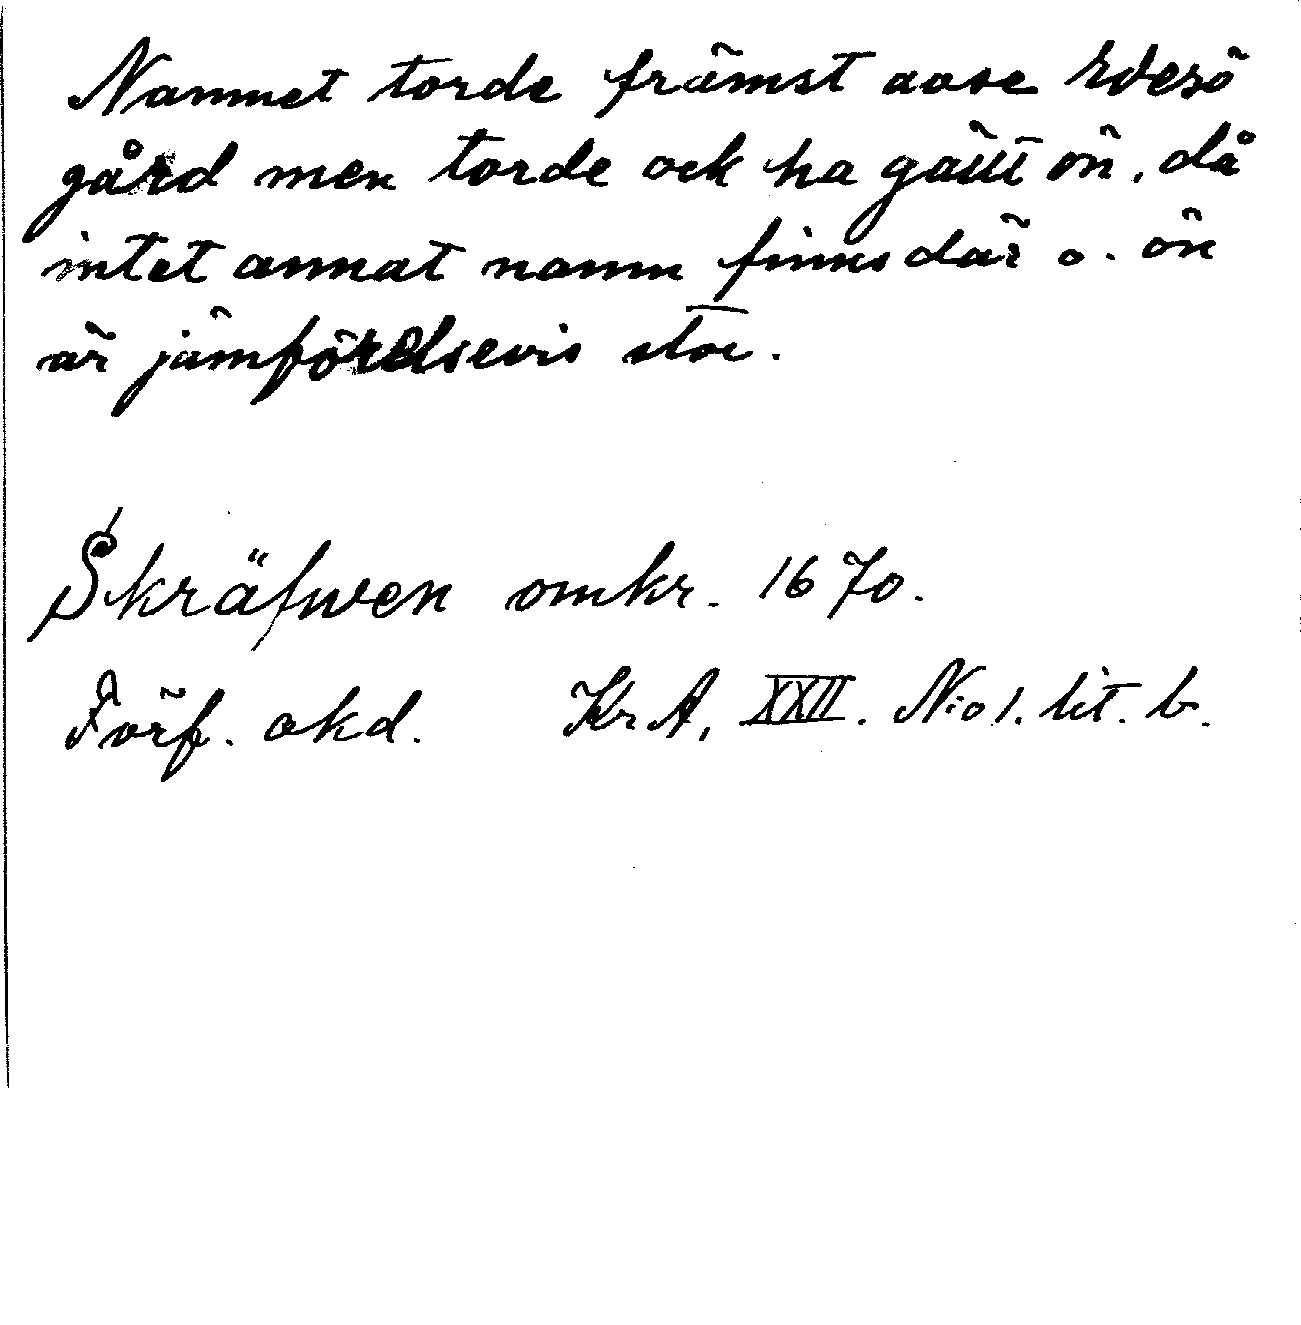 Namnet torde främst avse
gård men torde ock ha gällt ön, då
intet annat namn finns där o. ön
är jämförelsevis stor.
Skräfwen omkr. 1670.
Förf. okd. KrA, XXII. N:o 1. lit. b.